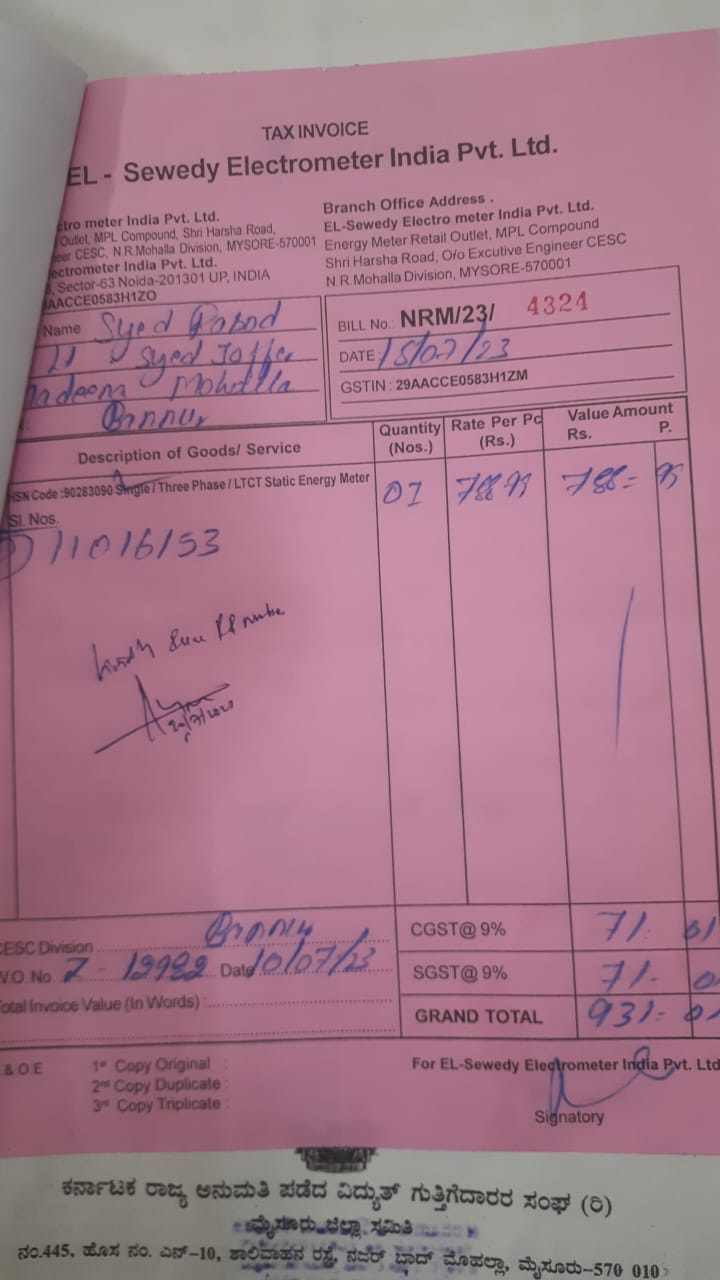 TAX INVOICE
EL - Sewedy Electrometer India Pvt. Ltd.
ctro meter India Pvt. Ltd.
Outlet, MPL Compound, Shri Harsha Road,
eer CESC, N.R.Mohalla Division, MYSORE-570001
ectrometer India Pvt. Ltd.
, Sector-63 Noida-201301 UP, INDIA
AACCE0583H1ZO
Branch Office Address .
EL-Sewedy Electro meter India Pvt. Ltd.
Energy Meter Retail Outlet, MPL Compound
Shri Harsha Road, O/o Excutive Engineer CESC
N.R.Mohalla Division, MYSORE-570001
Name Syed
Syed Jaffer
Mohalla
Bannur
BILL No.: NRM/23/ 4324
DATE : 15/07/23
GSTIN : 29AACCE0583H1ZM
Description of Goods/ Service
Quantity (Nos.)
Rate Per Pc (Rs.)
Value Amount
Rs. P.
HSN Code :90283090 Single / Three Phase / LTCT Static Energy Meter
01 788-99 788=99
Sl. Nos.
1) 11016153
20/7/2023
CESC Division Bannur
W.O No. Z - 12982 Date 10/07/23
Total Invoice Value (In Words) :
CGST@ 9% 71. 01
SGST@ 9% 71-
GRAND TOTAL 931= 01
& O.E
1st Copy Original :
2nd Copy Duplicate :
3rd Copy Triplicate :
For EL-Sewedy Electrometer India Pvt. Ltd
Signatory
ಕರ್ನಾಟಕ ರಾಜ್ಯ ಅನುಮತಿ ಪಡೆದ ವಿದ್ಯುತ್ ಗುತ್ತಿಗೆದಾರರ ಸಂಘ (ರಿ)
ಮೈಸೂರು ಜಿಲ್ಲಾ ಸಮಿತಿ
ನಂ.445, ಹೊಸ ನಂ. ಎನ್-10, ಶಾಲಿವಾಹನ ರಸ್ತೆ, ನಜರ್ ಬಾದ್ ಮೊಹಲ್ಲಾ, ಮೈಸೂರು-570 010